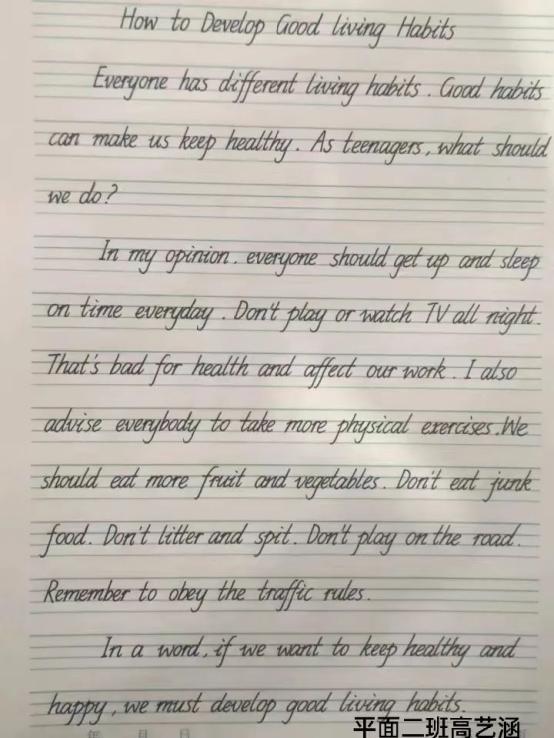 How to Develop Good living Habits
Everyone has different living habits. Good habits
can make us keep healthy. As teenagers, what should
we do?
In my opinion, everyone should get up and sleep
on time everyday. Don't play or watch TV all night.
That's bad for health and affect our work. I also
advise everybody to take more physical exercises. We
should eat more fruit and vegetables. Don't eat junk
food. Don't litter and spit. Don't play on the road.
Remember to obey the traffic rules.
In a word, if we want to keep healthy and
happy, we must develop good living habits.
年 月 日
平面二班高艺涵